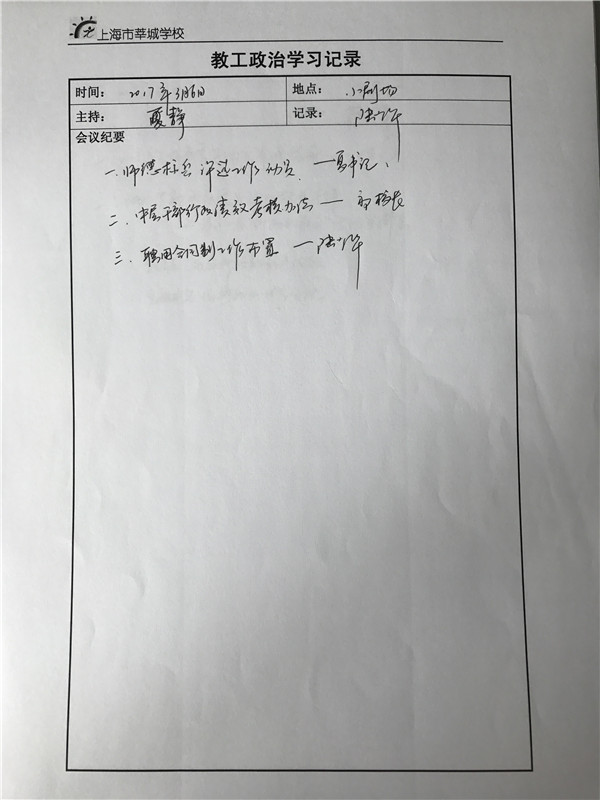 上海市莘城学校
教工政治学习记录
时间： 2017年3月6日 地点： 小剧场
主持： 夏静 记录：
会议纪要
一、师德标兵评选工作动员 —夏书记、
二、中层干部行政绩效考核办法 — 校长
三、聘用合同制工作布置 —